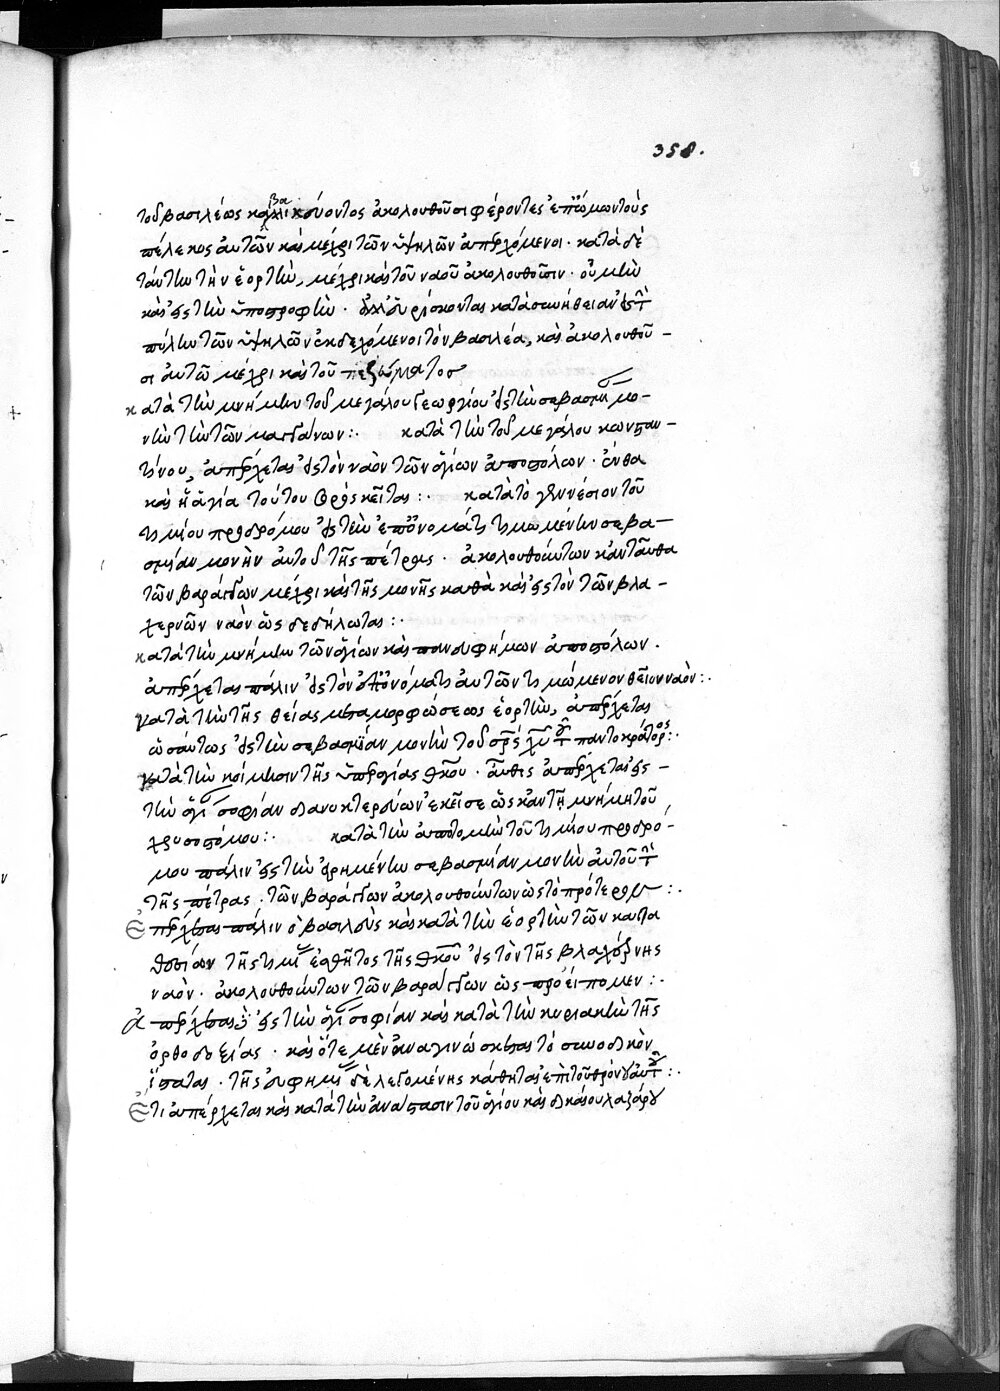 358.
τοῦ βασιλέως καβαλικεύοντος ἀκολουθοῦσι φέροντες ἐπ' ὤμων τοὺς
πέλεκας αὐτῶν καὶ μέχρι τῶν ὑψηλῶν ἀπερχόμενοι· κατὰ δὲ
ταύτην τὴν ἑορτὴν, μέχρι καὶ τοῦ ναοῦ ἀκολουθοῦσιν· οὐ μὴν
καὶ εἰς τὴν ὑποστροφὴν· ἀλλ' εὑρίσκονται κατὰ συνήθειαν εἰς τὴν
πύλην τῶν ὑψηλῶν ἐκδεχόμενοι τὸν βασιλέα, καὶ ἀκολουθοῦ-
σι αὐτῷ μέχρι καὶ τοῦ πεζεύματος
κατὰ τὴν μνήμην τοῦ μεγάλου Γεωργίου εἰς τὴν σεβασμί μο-
νὴν τὴν τῶν μαγγάνων:. κατὰ τὴν τοῦ μεγάλου κωνσταν-
τίνου, ἀπέρχεται εἰς τὸν ναὸν τῶν ἁγίων ἀποστόλων· ἔνθα
καὶ ἡ ἁγία τούτου σορὸς κεῖται:. κατὰ τὸ γεννέσιον τοῦ
τιμίου προδρόμου εἰς τὴν ἐπ' ὀνόματί τιμωμένην σεβα-
σμίαν μονὴν αὐτοῦ τῆς πέτρας· ἀκολουθούντων κἀνταῦθα
τῶν βαράγγων μέχρι καὶ τῆς μονῆς καθὰ καὶ εἰς τὸν τῶν βλα-
χερνῶν ναὸν ὡς δεδήλωται:.
κατὰ τὴν μνήμην τῶν ἁγίων καὶ πανευφήμων ἀποστόλων.
ἀπέρχεται πάλιν εἰς τὸν ἐπ' ὀνόματι αὐτῶν τιμώμενον θεῖον ναὸν:.
κατὰ τὴν τῆς θείας μεταμορφώσεως ἑορτὴν, ἀπέρχεται
ὡσαύτως εἰς τὴν σεβασμίαν μονὴν τοῦ σρς χυ τοῦ παντοκράτορος:.
κατὰ τὴν κοίμησιν τῆς ὑπεραγίας θκου· αὖθις ἀπέρχεται εἰς
τὴν ἁγί σοφίαν διανυκτερεύων ἐκεῖσε ὡς κἀν τῇ μνήμῃ τοῦ
χρυσοστόμου:. κατὰ τὴν ἀποτομὴν τοῦ τιμίου προδρό-
μου πάλιν εἰς τὴν εἰρημένην σεβασμίαν μονὴν αὐτοῦ τὴν
τῆς πέτρας· τῶν βαράγγων ἀκολουθούντων ὡς τὸ πρότερον:.
Ἀπέρχεται πάλιν ὁ βασιλεὺς καὶ κατὰ τὴν ἑορτὴν τῶν κατα
θεσίων τῆς τιμί ἐσθῆτος τῆς θκου εἰς τὸν τῆς βλαχέρνης
ναὸν· ἀκολουθούντων τῶν βαράγγων ὡς προείπομεν:.
ἀπέρχεται εἰς τὴν ἁγί σοφίαν καὶ κατὰ τὴν κυριακὴν τῆς
ὀρθοδοξίας· καὶ ὅτε μὲν ἀναγινώσκεται τὸ συνοδικὸν
ἵσταται· τῆς εὐφημί δὲ λεγομένης κάθηται ἐπὶ τοῦ θρόνου αὐτοῦ:.
Ἔτι ἀπέρχεται καὶ κατὰ τὴν ἀνάστασιν τοῦ ἁγίου καὶ δικαίου λαζάρου